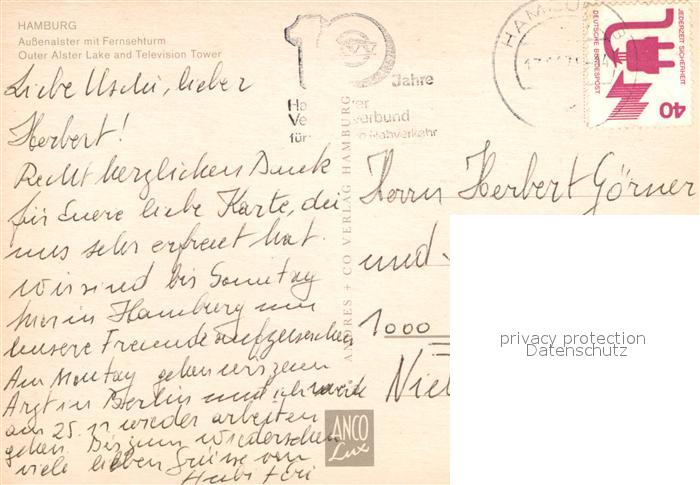 HAMBURG
Außenalster mit Fernsehturm
Outer Alster Lake and Television Tower
Liebe Uschi, lieber
Herbert!
Recht herzlichen Dank
für Euere liebe Karte, die
uns sehr erfreut hat.
Wir sind bis Sonntag
hier in Hamburg um
unsere Freunde aufzusuchen
Am Montag gehen wir zum
Arzt in Berlin und ich werde
am 25.11 wieder arbeiten
gehen. Bis zum Wiedersehen
viele lieben Grüsse von
ANDRES + CO VERLAG HAMBURG
ANCO
Lux
10
Jahre
Verbund
Nahverkehr
HAMBURG
JEDERZEIT SICHERHEIT
DEUTSCHE BUNDESPOST
40
Herrn Herbert Görner
und
1000
privacy protection
Datenschutz